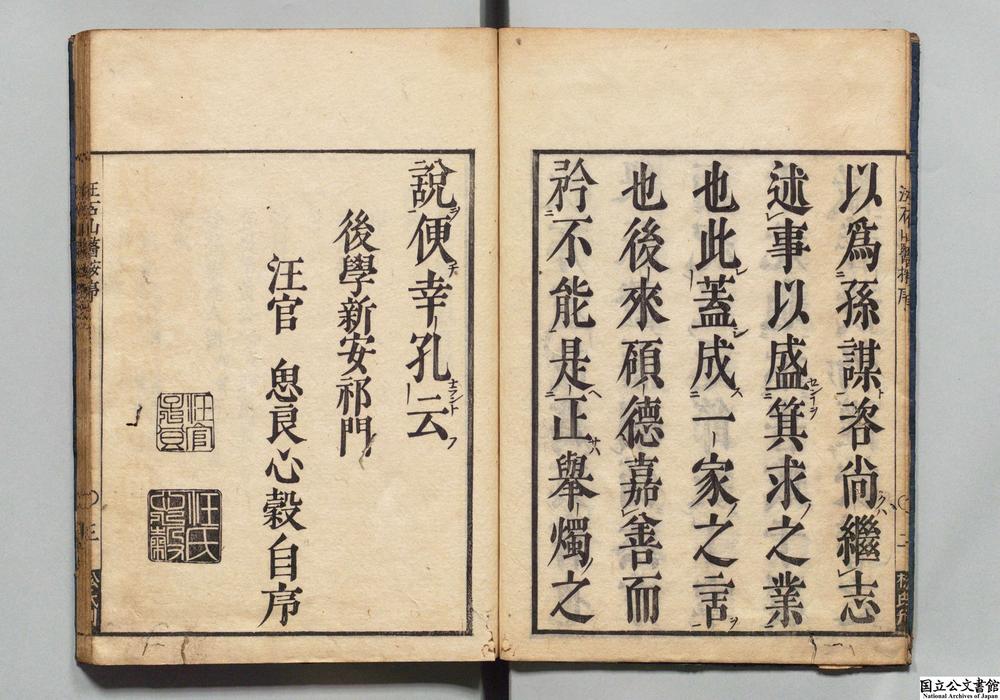 以爲孫謀咨尚繼志
述事以盛箕求之業
也此蓋成一家之言
也後來碩德嘉善而
矜不能是正舉燭之
說便幸孔云
後學新安祁門
汪官 良心穀自序
汪官
汪氏
国立公文書館
National Archives of Japan